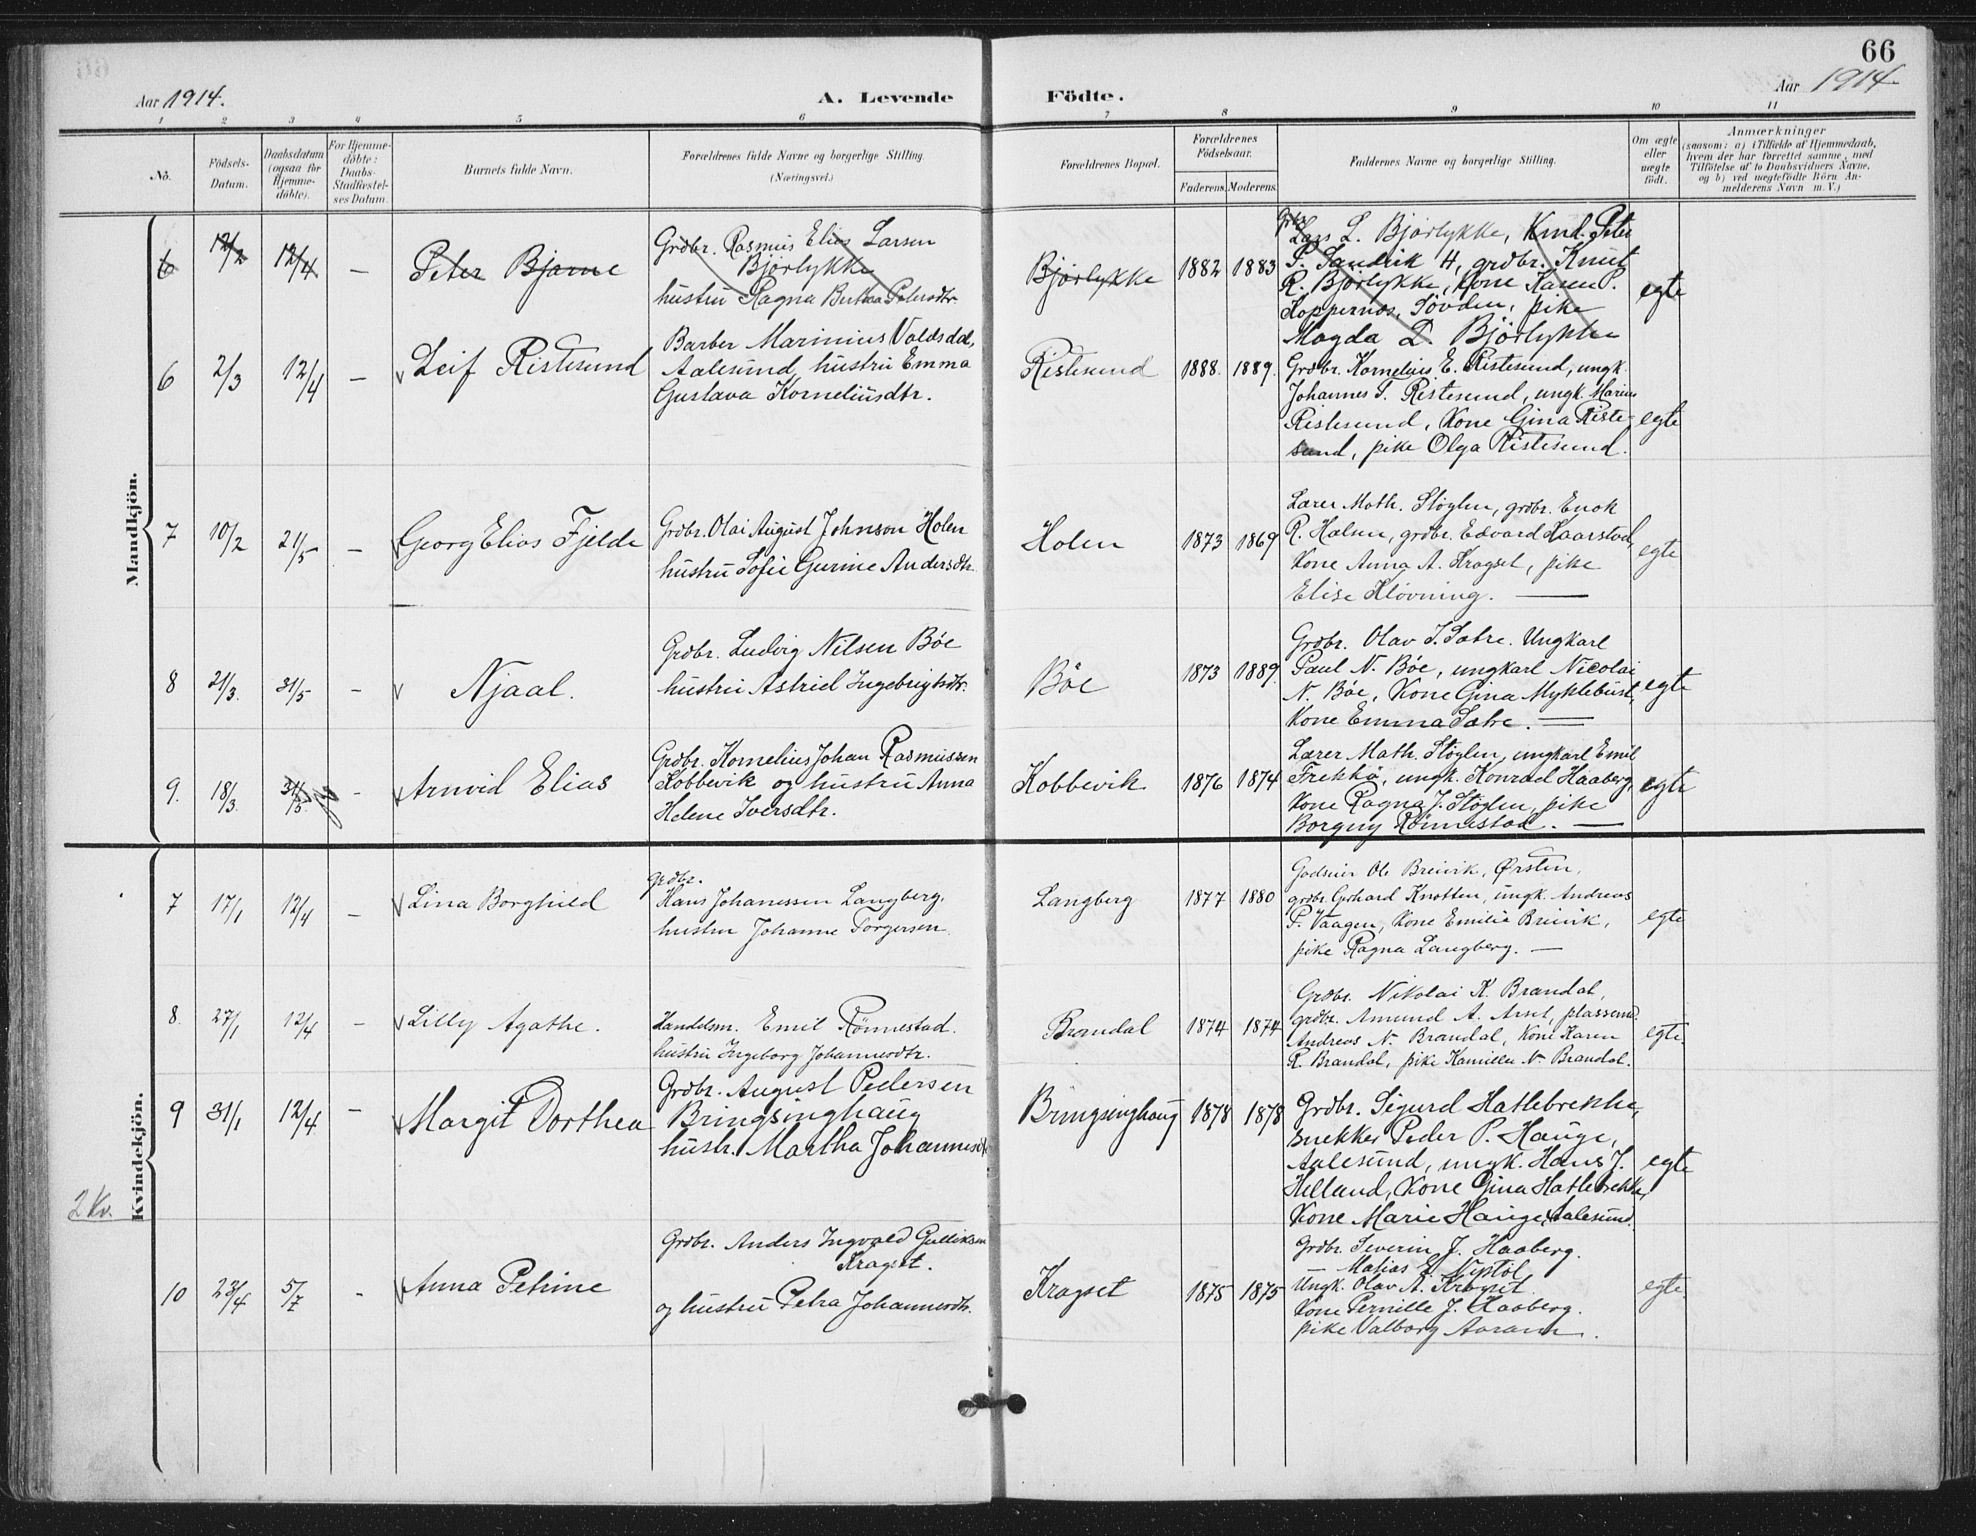 66
Aar 1914.
A. Levende
Födte.
Aar 1914
1 2 3 4 5 6 7 8 9 10 11
No.
Födsels-
Datum.
Daabsdatum
(ogsaa for
Hjemme-
döbte).
For Hjemme-
döbte:
Daabs-
Stadfæstel-
ses Datum.
Barnets fulde Navn.
Forældrenes fulde Navne og borgerlige Stilling.
(Næringsvei.)
Forældrenes Bopæl.
Forældrenes
Födselsaar.
Faderens. Moderens.
Faddernes Navne og borgerlige Stilling.
Om ægte
eller
uægte
födt.
Anmærkninger
(saasom: a) i Tilfælde af Hjemmedaab,
hvem der har forrettet samme, med
Tilföielse af to Daabsvidners Navne,
og b) ved uægtefödte Börn An-
melderens Navn m. V.)
Mandkjön.
6 12/2 12/4 – Peter Bjarne
Grdbr. Rasmus Elias Larsen
Bjørlykke
hustru Ragna Bertea Petersdtr.
Bjørlykke 1882 1883
Grbr. Lars L. Bjørlykke, Kmd. Peter
P. Sandvik H, grdbr. Knut
R. Bjørlykke, Kone Karen P.
Koppernæs, Søvden, pike
Magda D. Bjørlykke
egte
6 2/3 12/4 – Leif Ristesund
Barber Marinius Valdsdal,
Aalesund, hustru Emma
Gustava Korneliusdtr.
Ristesund 1888. 1889.
Grdbr. Kornelius E. Ristesund, ungk.
Johannes T. Ristesund, ungk. Marius
Ristesund, Kone Gina Riste-
sund, pike Olga Ristesund.
egte
7 10/2 21/5 – Georg Elias Fjelde
Grdbr. Olai August Johnson Holen
hustru Sofie Gurine Andersdtr.
Holen 1873 1869
Lærer Math. Støylen, grdbr. Enok
R. Halsen, grdbr. Edvard Haarstad,
Kone Anna A. Kragset, pike
Elise Kløvning. —
egte
8 21/3. 31/5 – Njaal.
Grdbr. Ludvig Nilsen Böe
hustru Astrid Ingebrigtsdtr.
Böe 1873 1889.
Grdbr. Olav J. Sætre. Ungkarl
Paul N. Böe, ungkarl Nicolai
N. Böe, Kone Gina Myklebust,
Kone Emma Sætre. —
egte
9. 18/3. 31/5. – Arnvid Elias
Grdbr. Kornelius Johan Rasmussen
Kobbevik og hustru Anna
Helene Iversdtr.
Kobbevik 1876 1874
Lærer Math. Støylen, ungkarl Emil
Frekkø, ungk. Konrad Haaberg,
Kone Ragna J. Støylen, pike
Borgny Rönnestad. —
egte
Kvindekjön.
7 17/1 12/4 – Lina Borghild
grdbr.
Hans Johanessen Langberg.
hustru Johanne Torgersen.
Langberg 1877 1880
Godseier Ole Breivik, Ørsten,
grdbr. Gerhard Knotten, ungk. Andreas
P. Vaagen, Kone Emilie Breivik,
pike Ragna Langberg. —
egte
8. 27/1 12/4 – Lilly Agathe.
Handelsm. Emil Rönnestad.
hustru Ingeborg Johannesdtr.
Brandal 1874 1874
Grdbr. Nikolai K. Brandal,
grdbr. Amund A. Arset, plassemd.
Andreas N. Brandal, Kone Karen
R. Brandal, pike Kamilla N. Brandal.
egte.
9 31/1 12/4 – Margit Dorthea
Grdbr. August Pedersen
Bringsinghaug
hustr. Martha Johannesdtr
Bringsinghaug 1878 1878
Grdbr. Sigurd Hatlebrekke,
Snekker Peder P. Hauge,
Aalesund, ungk. Hans J.
Helland, Kone Gina Hatlebrekke,
Kone Marie Hauge, Aalesund.
egte
2 Kv.
10 23/4 5/7 – Anna Petrine
Grdbr. Anders Ingvald Gulliksen
Kragset.
og hustru Petra Johannesdtr.
Kragset 1875 1875
Grdbr. Severin J. Haaberg.
— Matias
Ungk. Olav A. Kragset
Kone Pernille J. Haaberg.
pike Valborg Aaram.
egte.